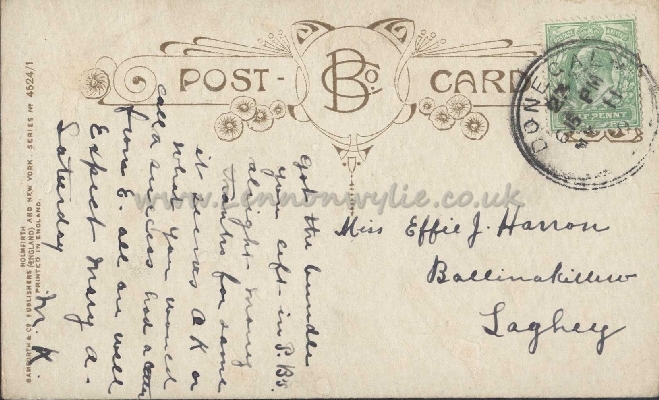 POST-
B Co.
CARD
POSTAGE
DONEGAL
PM
11
Got the bundle
you left - in P. Bs.
alright - many
thanks for same
it was O K or
what you would
call a success had a letter
from E. all are well
Expect Mary a -
Saturday
M. K.
Miss Effie J. Harron
Ballinakillew
Laghey
BAMFORTH & CO. PUBLISHERS HOLMFIRTH (ENGLAND) AND NEW YORK. SERIES No 4524/1
PRINTED IN ENGLAND.
www.lennonwylie.co.uk